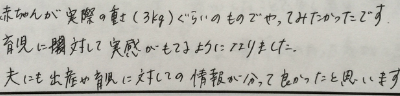 赤ちゃんが実際の重さ(3kg)ぐらいのものでやってみたかったです。
育児に関対して実感がもてるようになりました。
夫にも出産や育児に対しての情報が分って良かったと思います